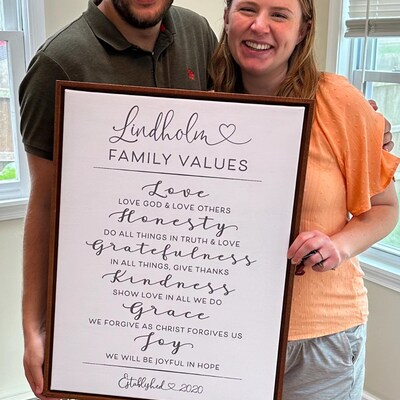 Lindholm
FAMILY VALUES
Love
LOVE GOD & LOVE OTHERS
Honesty
DO ALL THINGS IN TRUTH & LOVE
Gratefulness
IN ALL THINGS, GIVE THANKS
Kindness
SHOW LOVE IN ALL WE DO
Grace
WE FORGIVE AS CHRIST FORGIVES US
Joy
WE WILL BE JOYFUL IN HOPE
Established 2020